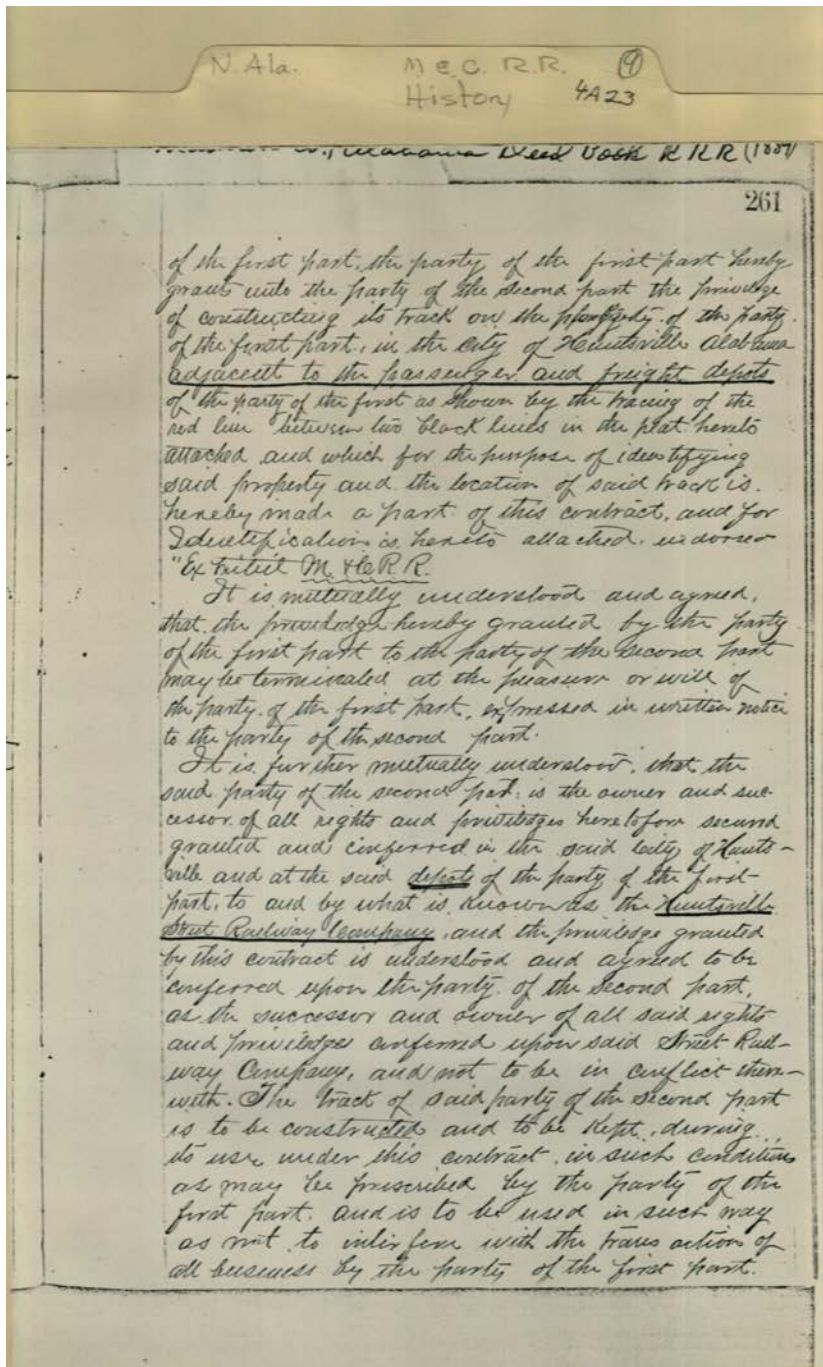 N. Ala. M & C. R.R. (9)
History 4A23
Alabama Deed Book RRR (188
261
of the first part, the party of the first part hereby
grants unto the party of the second part the privilege
of constructing its track on the property of the party
of the first part, in the City of Huntsville Alabama
adjacent to the passenger and freight depots
of the party of the first as shown by the tracing of the
red line between two black lines in the plat hereto
attached and which for the purpose of identifying
said property and the location of said track is
hereby made a part of this contract, and for
Identification is hereto attached. indorsed
"Exhibit M. & C R. R.
It is mutually understood and agreed,
that the priviledge hereby granted by the party
of the first part to the party of the second part
may be terminated at the pleasure or will of
the party of the first part, expressed in written notice
to the party of the second part.
It is further mutually understood, that the
said party of the second part is the owner and suc-
cessor of all rights and priviledges heretofore secured
granted and conferred in the said City of Hunts-
ville and at the said depots of the party of the first
part, to and by what is known as the Huntsville
Street Railway Company, and the priviledge granted
by this contract is understood and agreed to be
conferred upon the party of the second part,
as the successor and owner of all said rights
and priviledges conferred upon said Street Rail-
way Company, and not to be in conflict there-
with. The track of said party of the second part
is to be constructed and to be kept, during
its use under this contract in such condition
as may be prescribed by the party of the
first part. and is to be used in such way
as not to interfere with the transaction of
all business by the party of the first part.